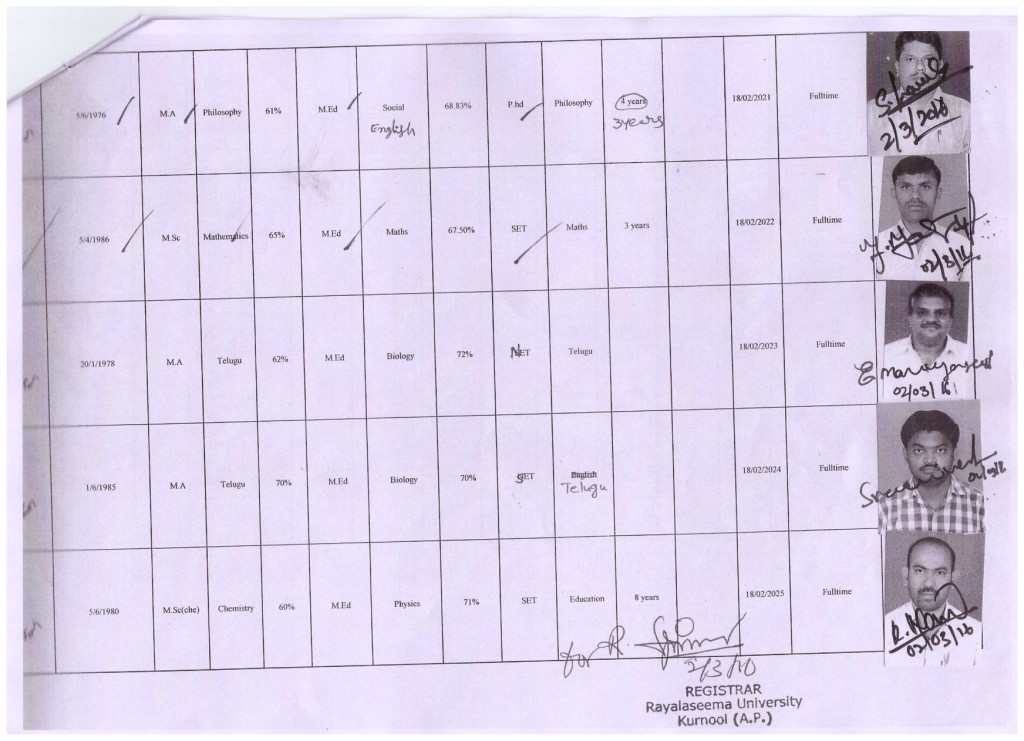 5/6/1976 M.A Philosophy 61% M.Ed Social 68.83% P.hd Philosophy 4 years 18/02/2021 Fulltime
English 3 years
2/3/2016
5/4/1986 M.Sc Mathematics 65% M.Ed Maths 67.50% SET Maths 3 years 18/02/2022 Fulltime
02/3/16
20/1/1978 M.A Telugu 62% M.Ed Biology 72% NET Telugu 18/02/2023 Fulltime
02/03/16
1/6/1985 M.A Telugu 70% M.Ed Biology 70% SET English 18/02/2024 Fulltime
Telugu
5/6/1980 M.Sc(che) Chemistry 60% M.Ed Physics 71% SET Education 8 years 18/02/2025 Fulltime
02/03/16
for R.
2/3/16
REGISTRAR
Rayalaseema University
Kurnool (A.P.)